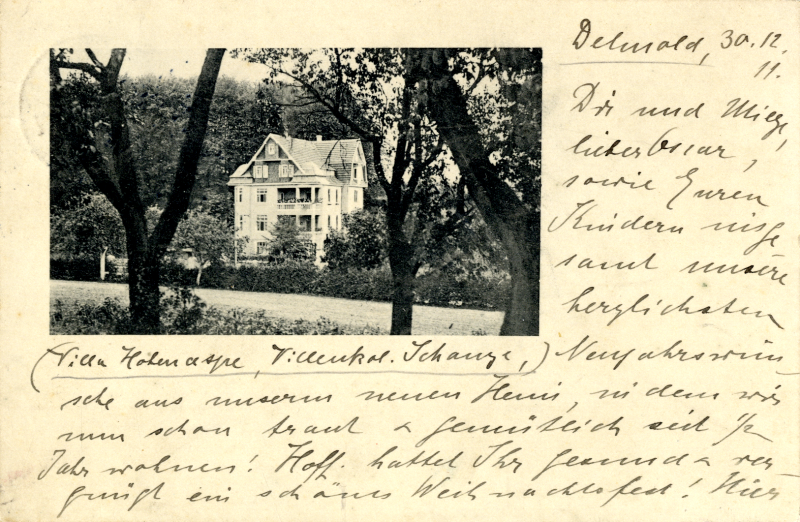 Detmold, 30.12.
11.
Dir und Miege,
lieber Oscar,
sowie Euren
Kindern ins ge
samt unsere
herzlichsten
(Villa Hohenaspe, Villenkol. Schanze,) Neujahrswün
sche aus unserm neuen Heim, in dem wir
nun schon traut & gemütlich seit 1/2
Jahr wohnen! Hoff. hattet Ihr gesund & ver-
gnügt ein schönes Weihnachtsfest! Hier